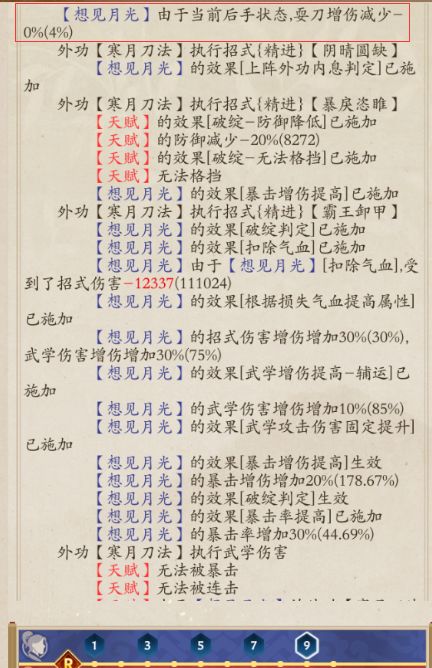 【想见月光】由于当前后手状态,耍刀增伤减少-
0%(4%)
外功【寒月刀法】执行招式{精进}【阴晴圆缺】
【想见月光】的效果[上阵外功内息判定]已施
加
外功【寒月刀法】执行招式{精进}【暴戾恣睢】
【天赋】的效果[破绽-防御降低]已施加
【天赋】的防御减少-20%(8272)
【天赋】的效果[破绽-无法格挡]已施加
【天赋】无法格挡
【想见月光】的效果[暴击增伤提高]已施加
外功【寒月刀法】执行招式{精进}【霸王卸甲】
【想见月光】的效果[破绽判定]已施加
【想见月光】的效果[扣除气血]已施加
【想见月光】由于【想见月光】[扣除气血],受
到了招式伤害-12337(111024)
【想见月光】的效果[根据损失气血提高属性]
已施加
【想见月光】的招式伤害增伤增加30%(30%),
武学伤害增伤增加30%(75%)
【想见月光】的效果[武学增伤提高-辅运]已
施加
【想见月光】的武学伤害增伤增加10%(85%)
【想见月光】的效果[武学攻击伤害固定提升]
已施加
【想见月光】的效果[暴击增伤提高]生效
【想见月光】的暴击增伤增加20%(178.67%)
【想见月光】的效果[破绽判定]生效
【想见月光】的效果[暴击率提高]已施加
【想见月光】的暴击率增加30%(44.69%)
外功【寒月刀法】执行武学伤害
【天赋】无法被暴击
【天赋】无法被连击
1 3 5 7 9
R